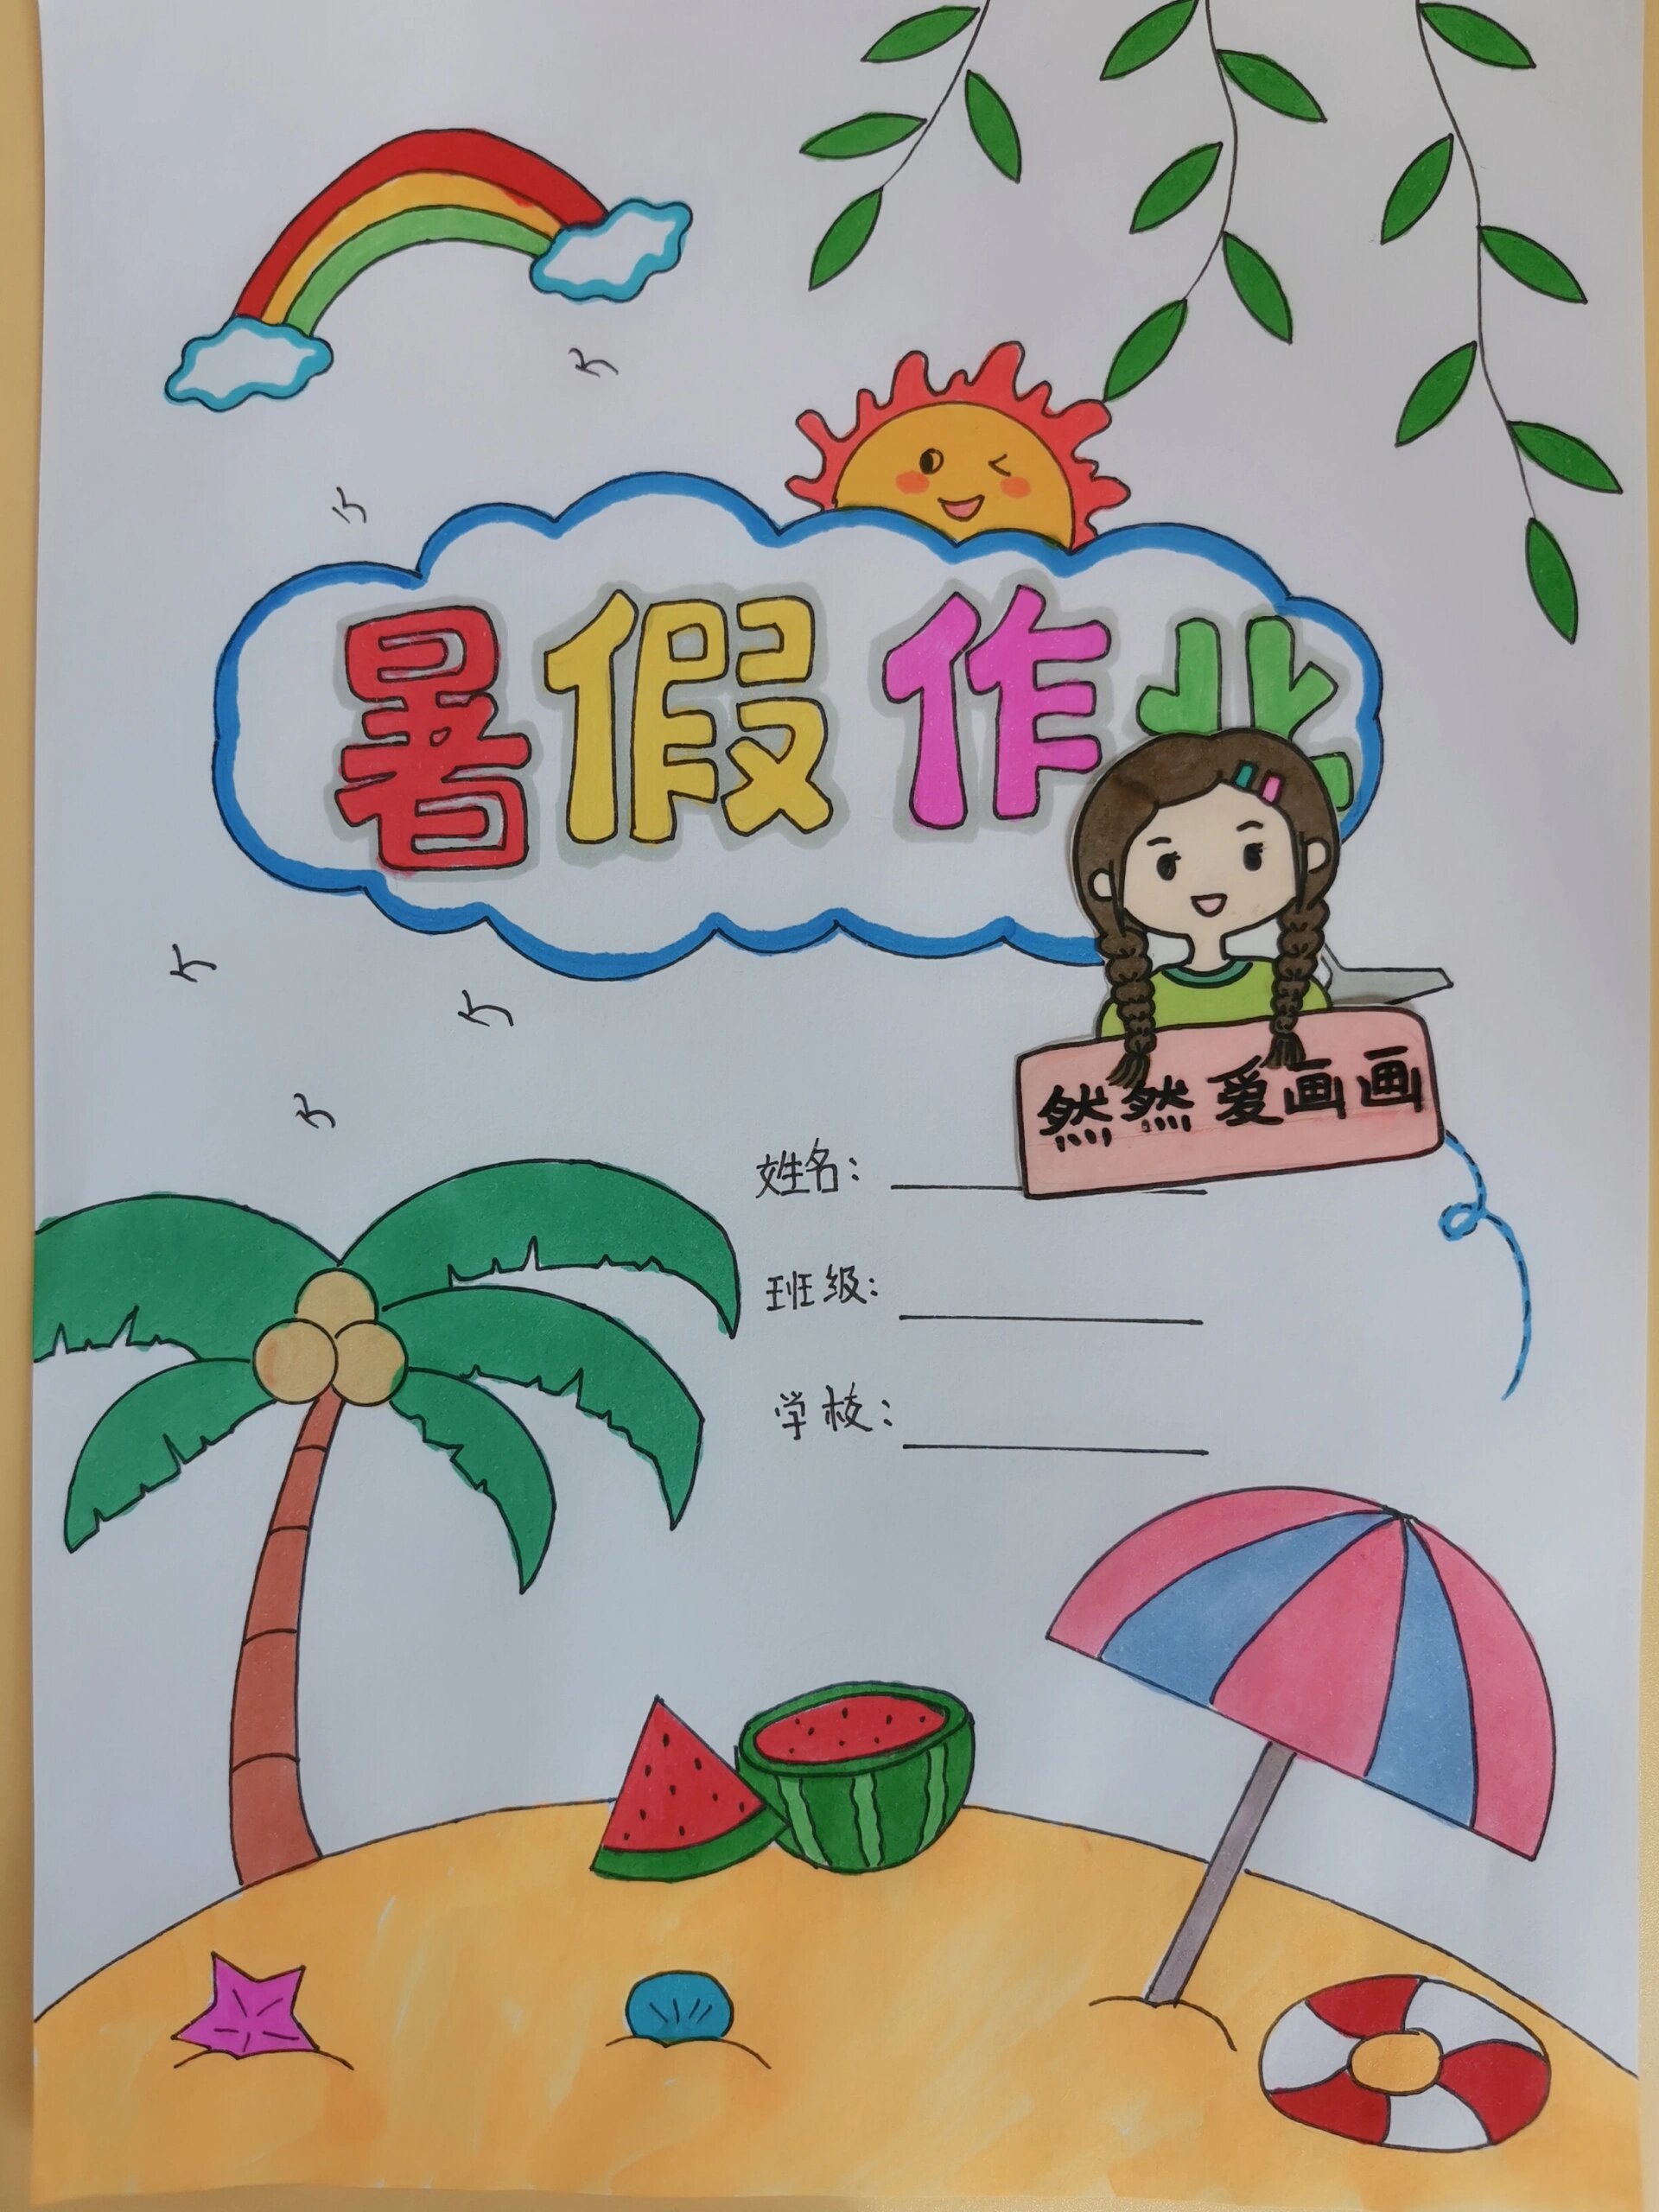 暑假作业
然然爱画画
姓名：
班级：
学校：